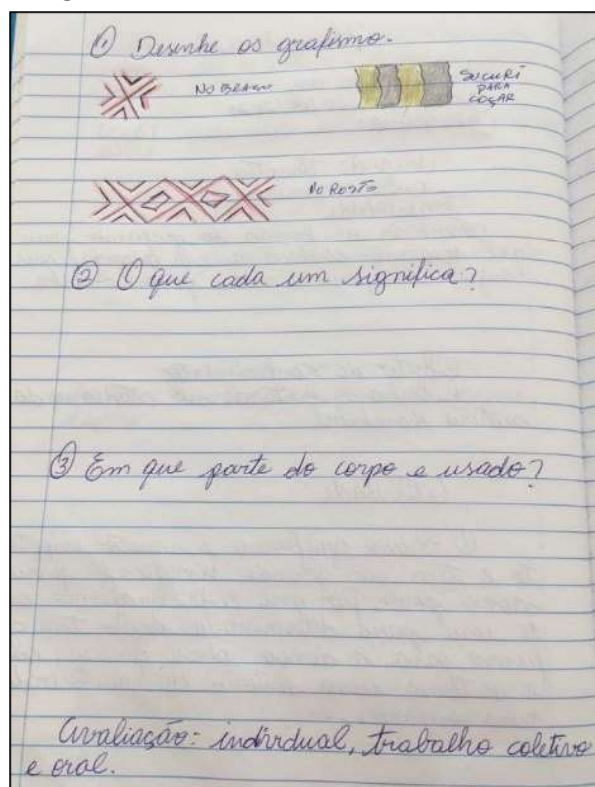 ① Desenhe os grafismo.
NO BRAÇO
SUCURI
PARA
COÇAR
NO ROSTO
② O que cada um significa?
③ Em que parte do corpo e usado?
Avaliação: individual, trabalho coletivo
e oral.